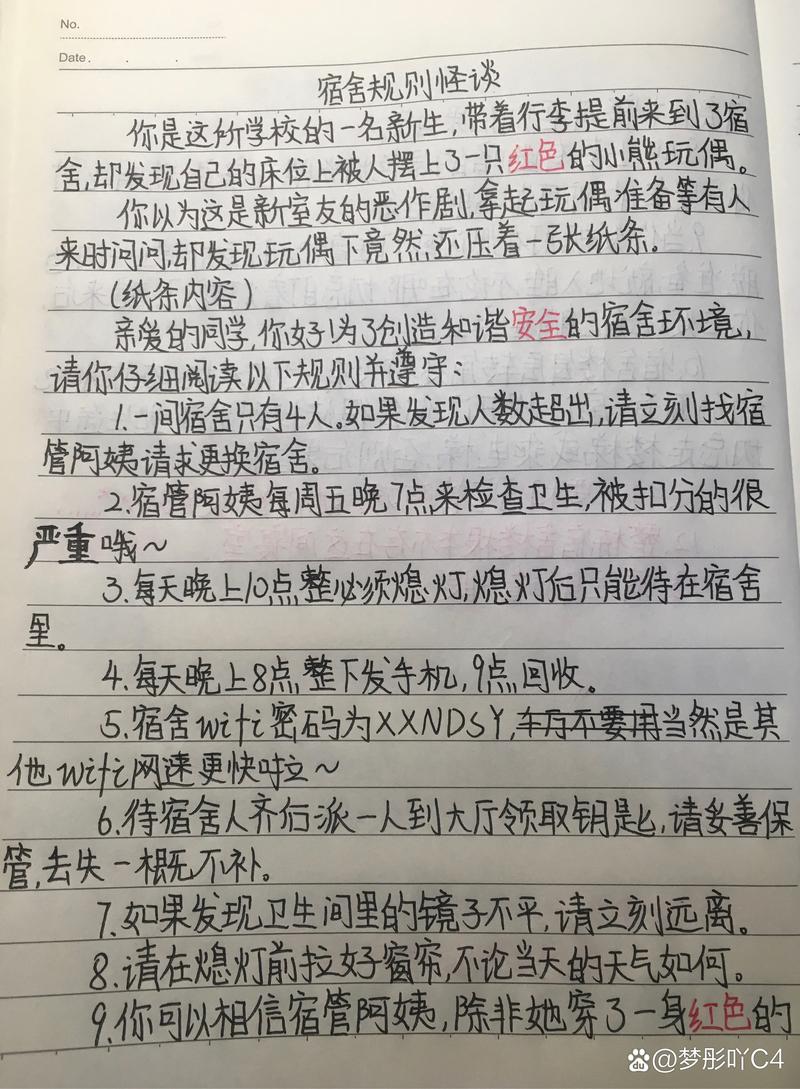 No.
Date . . .
宿舍规则怪谈
你是这所学校的一名新生,带着行李提前来到了宿
舍,却发现自己的床位上被人摆上了一只红色的小熊玩偶。
你以为这是新室友的恶作剧,拿起玩偶准备等有人
来时问问,却发现玩偶下竟然还压着一张纸条。
(纸条内容)
亲爱的同学,你好!为了创造和谐安全的宿舍环境,
请你仔细阅读以下规则并遵守:
1.一间宿舍只有4人。如果发现人数超出,请立刻找宿
管阿姨请求更换宿舍。
2.宿管阿姨每周五晚7点来检查卫生,被扣分的很
严重哦~
3.每天晚上10点整必须熄灯,熄灯后只能待在宿舍
里。
4.每天晚上8点整下发手机,9点回收。
5.宿舍wifi密码为XXNDSY,不要用当然是其
他wifi网速更快啦~
6.待宿舍人齐后派一人到大厅领取钥匙,请妥善保
管,丢失一概不补。
7.如果发现卫生间里的镜子不平,请立刻远离。
8.请在熄灯前拉好窗帘,不论当天的天气如何。
9.你可以相信宿管阿姨,除非她穿了一身红色的
@梦彤吖C4